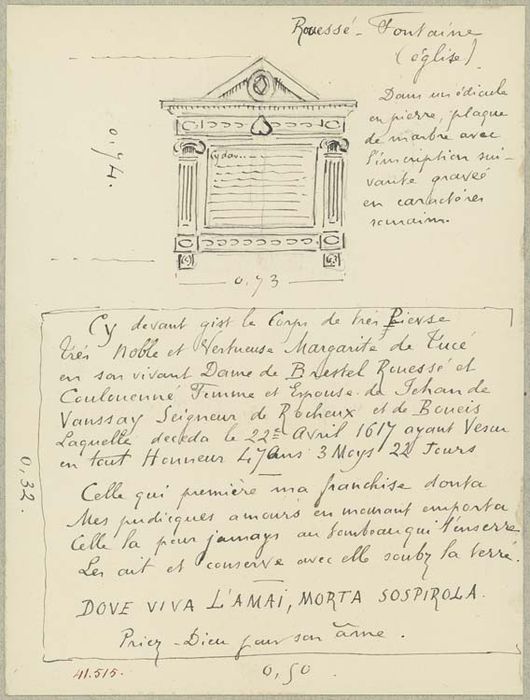 Rouessé-Fontaine
(église)
Dans un édicule
en pierre, plaque
de marbre avec
l'inscription sui-
vante gravée
en caractères
romains.
Cy dev...
0,74.
0,73
Cy devant gist le Corps de très Pievse
très Noble et Vertueuse Margarite de Tucé
en son vivant Dame de Brestel Rouessé et
Coulouenné Femme et Espouse de Jehan de
Vanssay Seigneur de Rocheux et de Boueis
Laquelle deceda le 22e Avril 1617 ayant Vescu
en tout Honneur 47 ans 3 Moys 22 Jours
0,32.
Celle qui première ma franchise donta
Mes pudicques amours en mourant emporta
Celle la pour jamays au tombeau qui l'enserre
Les ait et conserve avec elle soubz la terre.
DOVE VIVA L'AMAI, MORTA SOSPIROLA.
Priez Dieu pour son âme.
41.515.
0,50